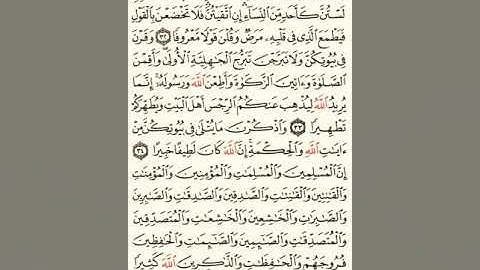 لَسْتُنَّ كَأَحَدٍ مِّنَ النِّسَاءِ إِنِ اتَّقَيْتُنَّ فَلَا تَخْضَعْنَ بِالْقَوْلِ
فَيَطْمَعَ الَّذِي فِي قَلْبِهِ مَرَضٌ وَقُلْنَ قَوْلًا مَّعْرُوفًا ٣٢ وَقَرْنَ
فِي بُيُوتِكُنَّ وَلَا تَبَرَّجْنَ تَبَرُّجَ الْجَاهِلِيَّةِ الْأُولَىٰ وَأَقِمْنَ
الصَّلَوٰةَ وَءَاتِينَ الزَّكَوٰةَ وَأَطِعْنَ اللَّهَ وَرَسُولَهُ إِنَّمَا
يُرِيدُ اللَّهُ لِيُذْهِبَ عَنكُمُ الرِّجْسَ أَهْلَ الْبَيْتِ وَيُطَهِّرَكُمْ
تَطْهِيرًا ٣٣ وَاذْكُرْنَ مَا يُتْلَىٰ فِي بُيُوتِكُنَّ مِنْ
ءَايَاتِ اللَّهِ وَالْحِكْمَةِ إِنَّ اللَّهَ كَانَ لَطِيفًا خَبِيرًا ٣٤
إِنَّ الْمُسْلِمِينَ وَالْمُسْلِمَاتِ وَالْمُؤْمِنِينَ وَالْمُؤْمِنَاتِ
وَالْقَانِتِينَ وَالْقَانِتَاتِ وَالصَّادِقِينَ وَالصَّادِقَاتِ وَالصَّابِرِينَ
وَالصَّابِرَاتِ وَالْخَاشِعِينَ وَالْخَاشِعَاتِ وَالْمُتَصَدِّقِينَ
وَالْمُتَصَدِّقَاتِ وَالصَّائِمِينَ وَالصَّائِمَاتِ وَالْحَافِظِينَ
فُرُوجَهُمْ وَالْحَافِظَاتِ وَالذَّاكِرِينَ اللَّهَ كَثِيرًا